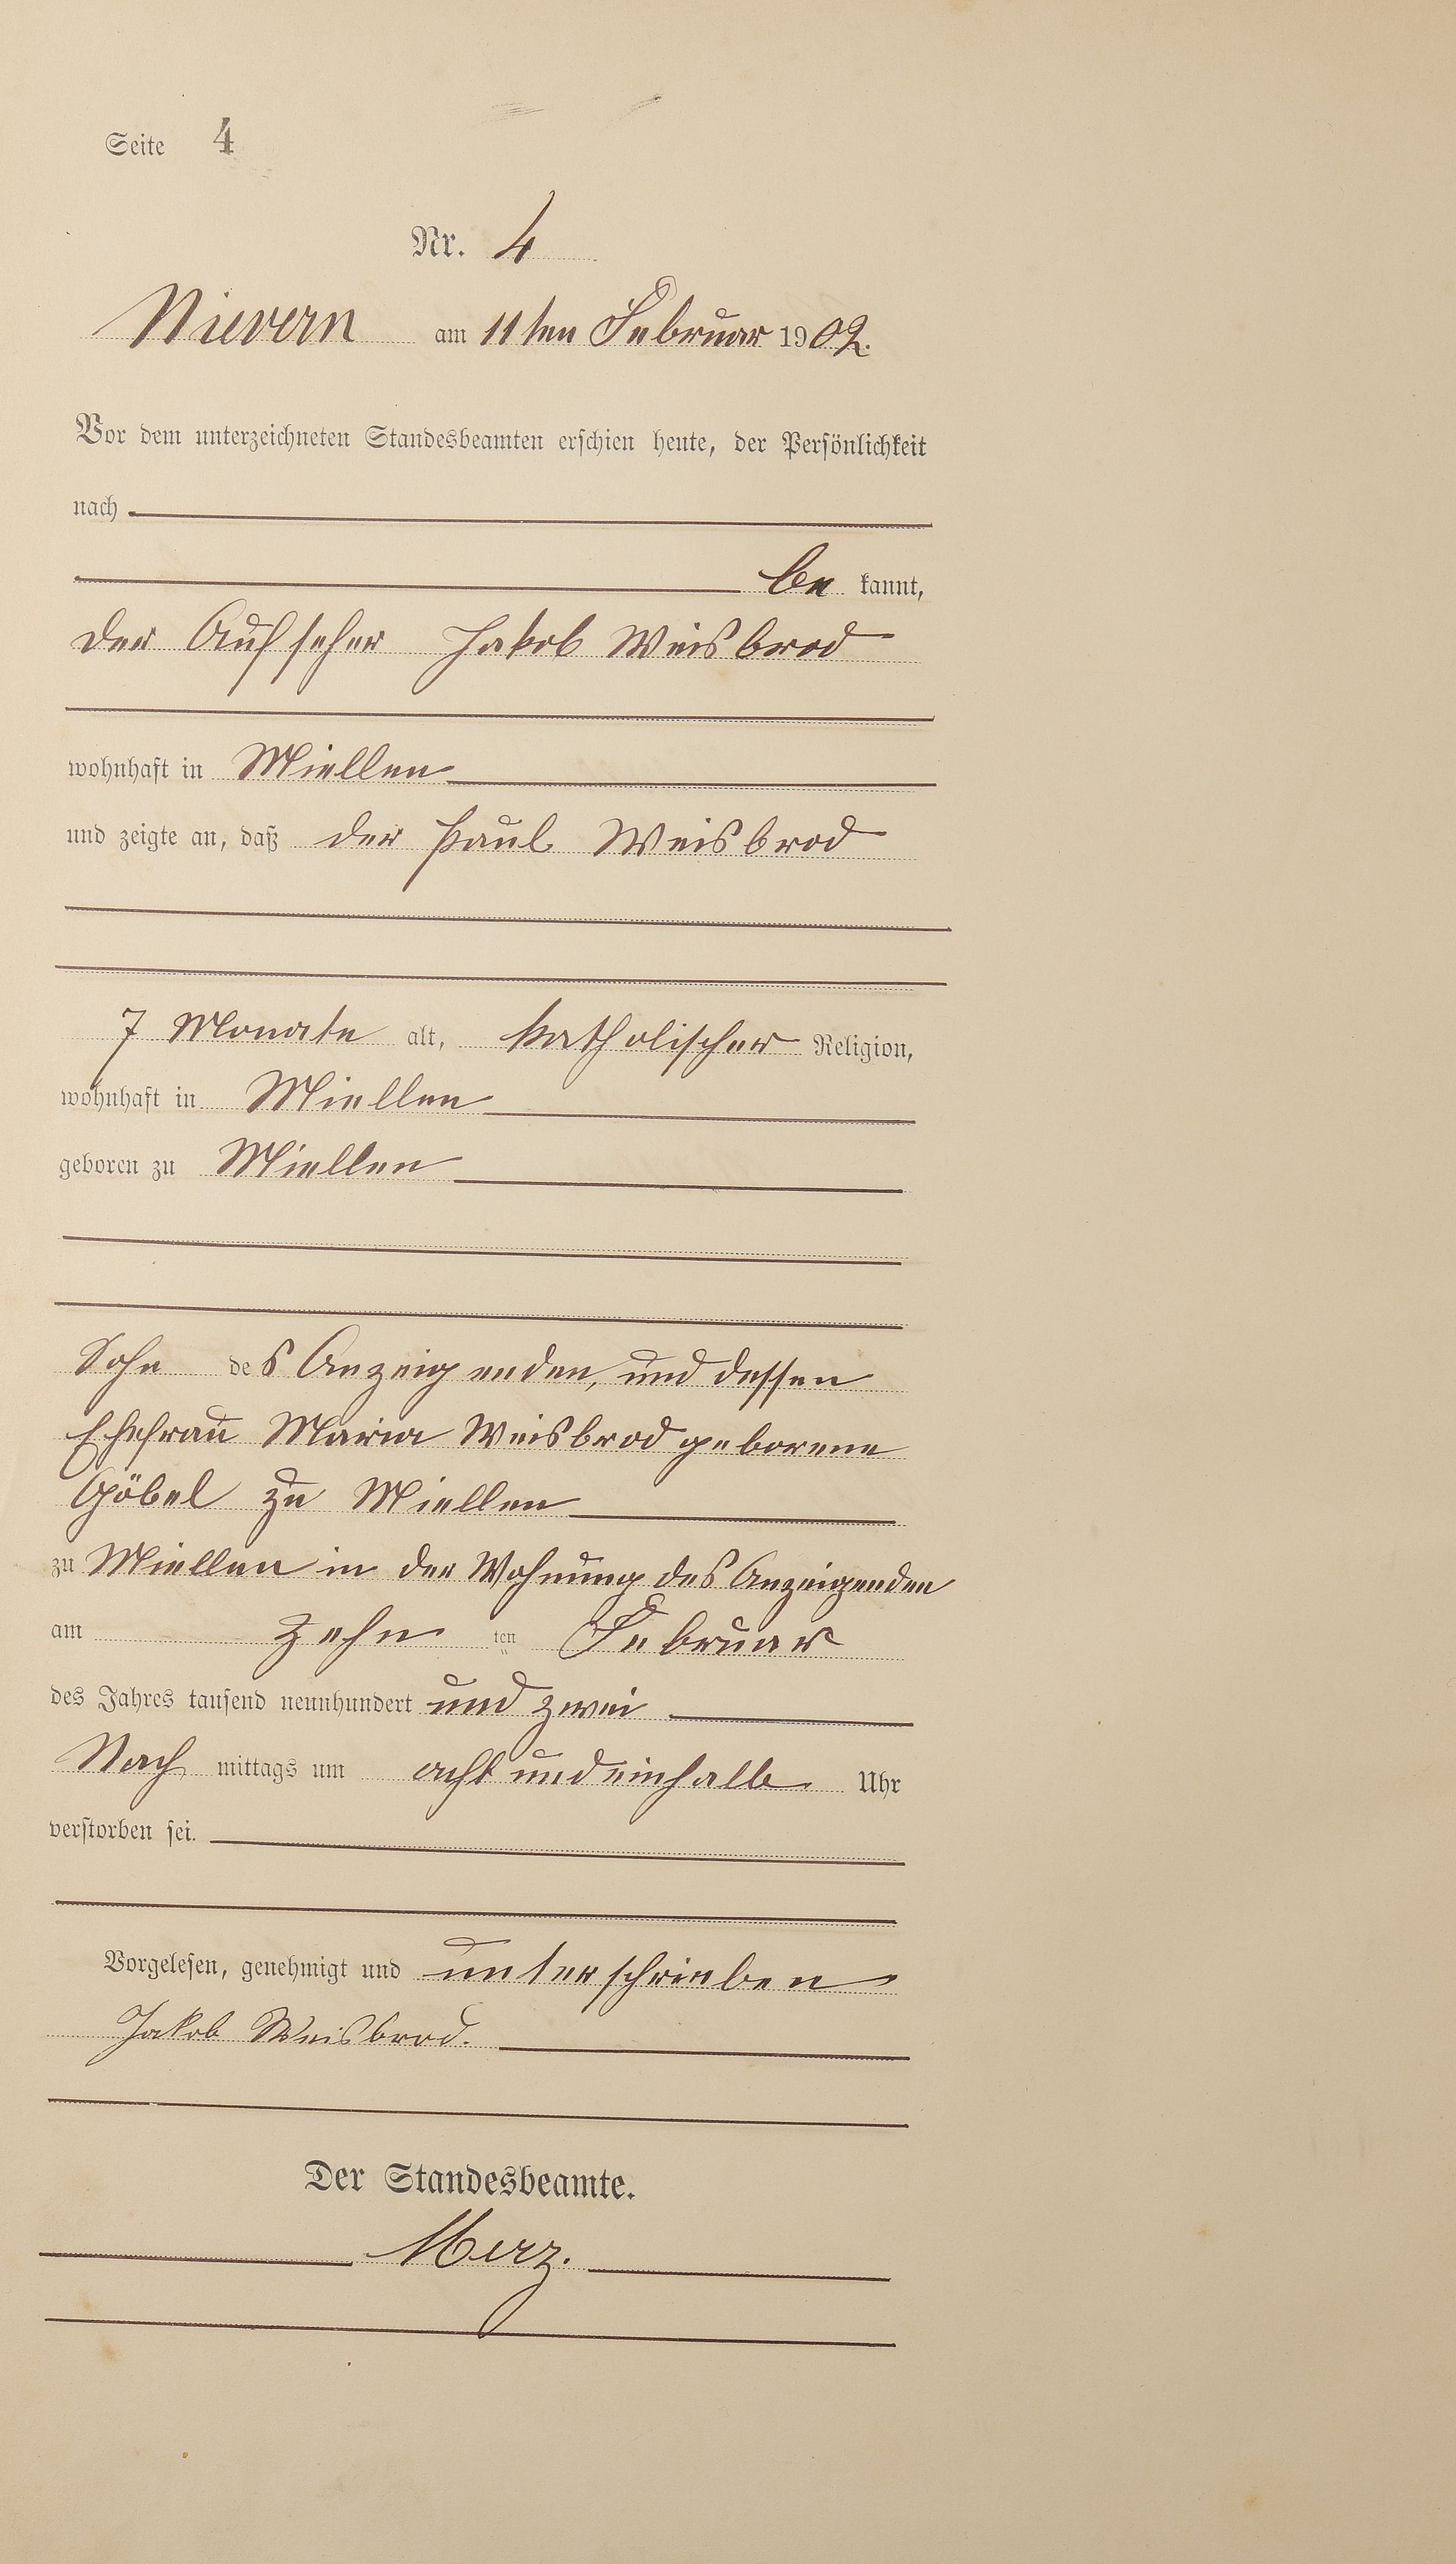 Seite 4
Nr. 4
Nievern am 11ten Februar 1902.
Vor dem unterzeichneten Standesbeamten erschien heute, der Persönlichkeit
nach
be kannt,
der Aufseher Jakob Weisbrod
wohnhaft in Miellen
und zeigte an, daß der Paul Weisbrod
7 Monate alt, katholischer Religion,
wohnhaft in Miellen
geboren zu Miellen
Sohn des Anzeigenden, und dessen
Ehefrau Maria Weisbrod geborene
Göbel zu Miellen
zu Miellen in der Wohnung des Anzeigenden
am zehn ten Februar
des Jahres tausend neunhundert und zwei
Nach mittags um acht und einhalb Uhr
verstorben sei.
Vorgelesen, genehmigt und unterschrieben
Jakob Weisbrod.
Der Standesbeamte.
Merz.